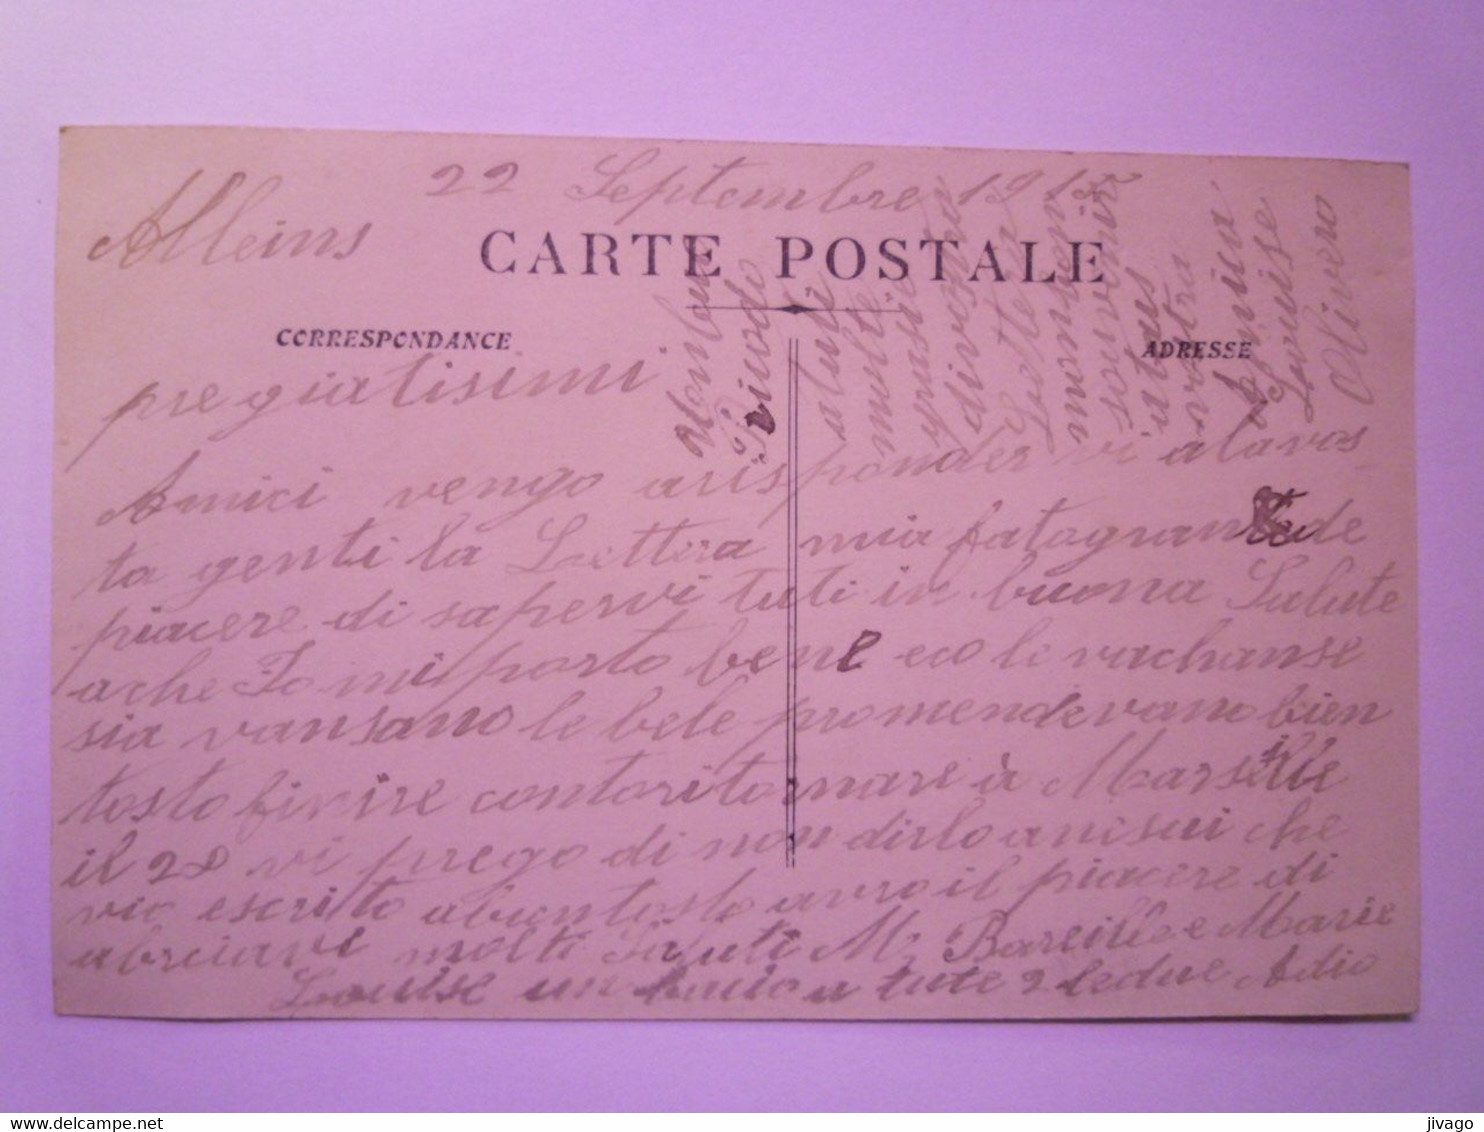 22 Septembre 191
Alleins
CARTE POSTALE
CORRESPONDANCE
ADRESSE
pregiatisimi
Amici vengo arisponder vi alavos
ta genti la Lettera mia fato gran de
piacere di sapervi tuti in buona Salute
ache Io mi porto bene eco le vachanse
sia vansano le bele promende vano bien
tosto finire conto ritornare à Marseille
il 28 vi prego di non dirlo a nisui che
vio escrito abientosto avro il piacere di
abrciavi molti Saluti M Bareille e Marie
Louise un bacio a tute 2 le due Adio
saluti
molte
grasie
di vostra
Lettera
mon
souvenire
a tous
vostra
Amica
Louise
Olivero
delcampe.net
jivago